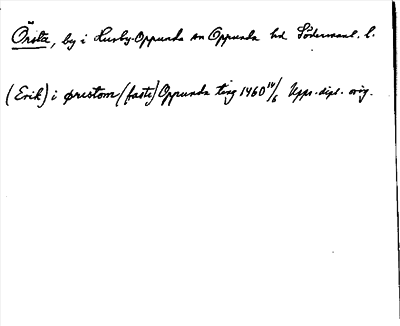 Örsta, by i Husby-Oppunda sn Oppunda hd Södermanl. l.
(Erik) i ørestom (faste) Oppunda ting 1460 14/6 Upps. dipl. orig.